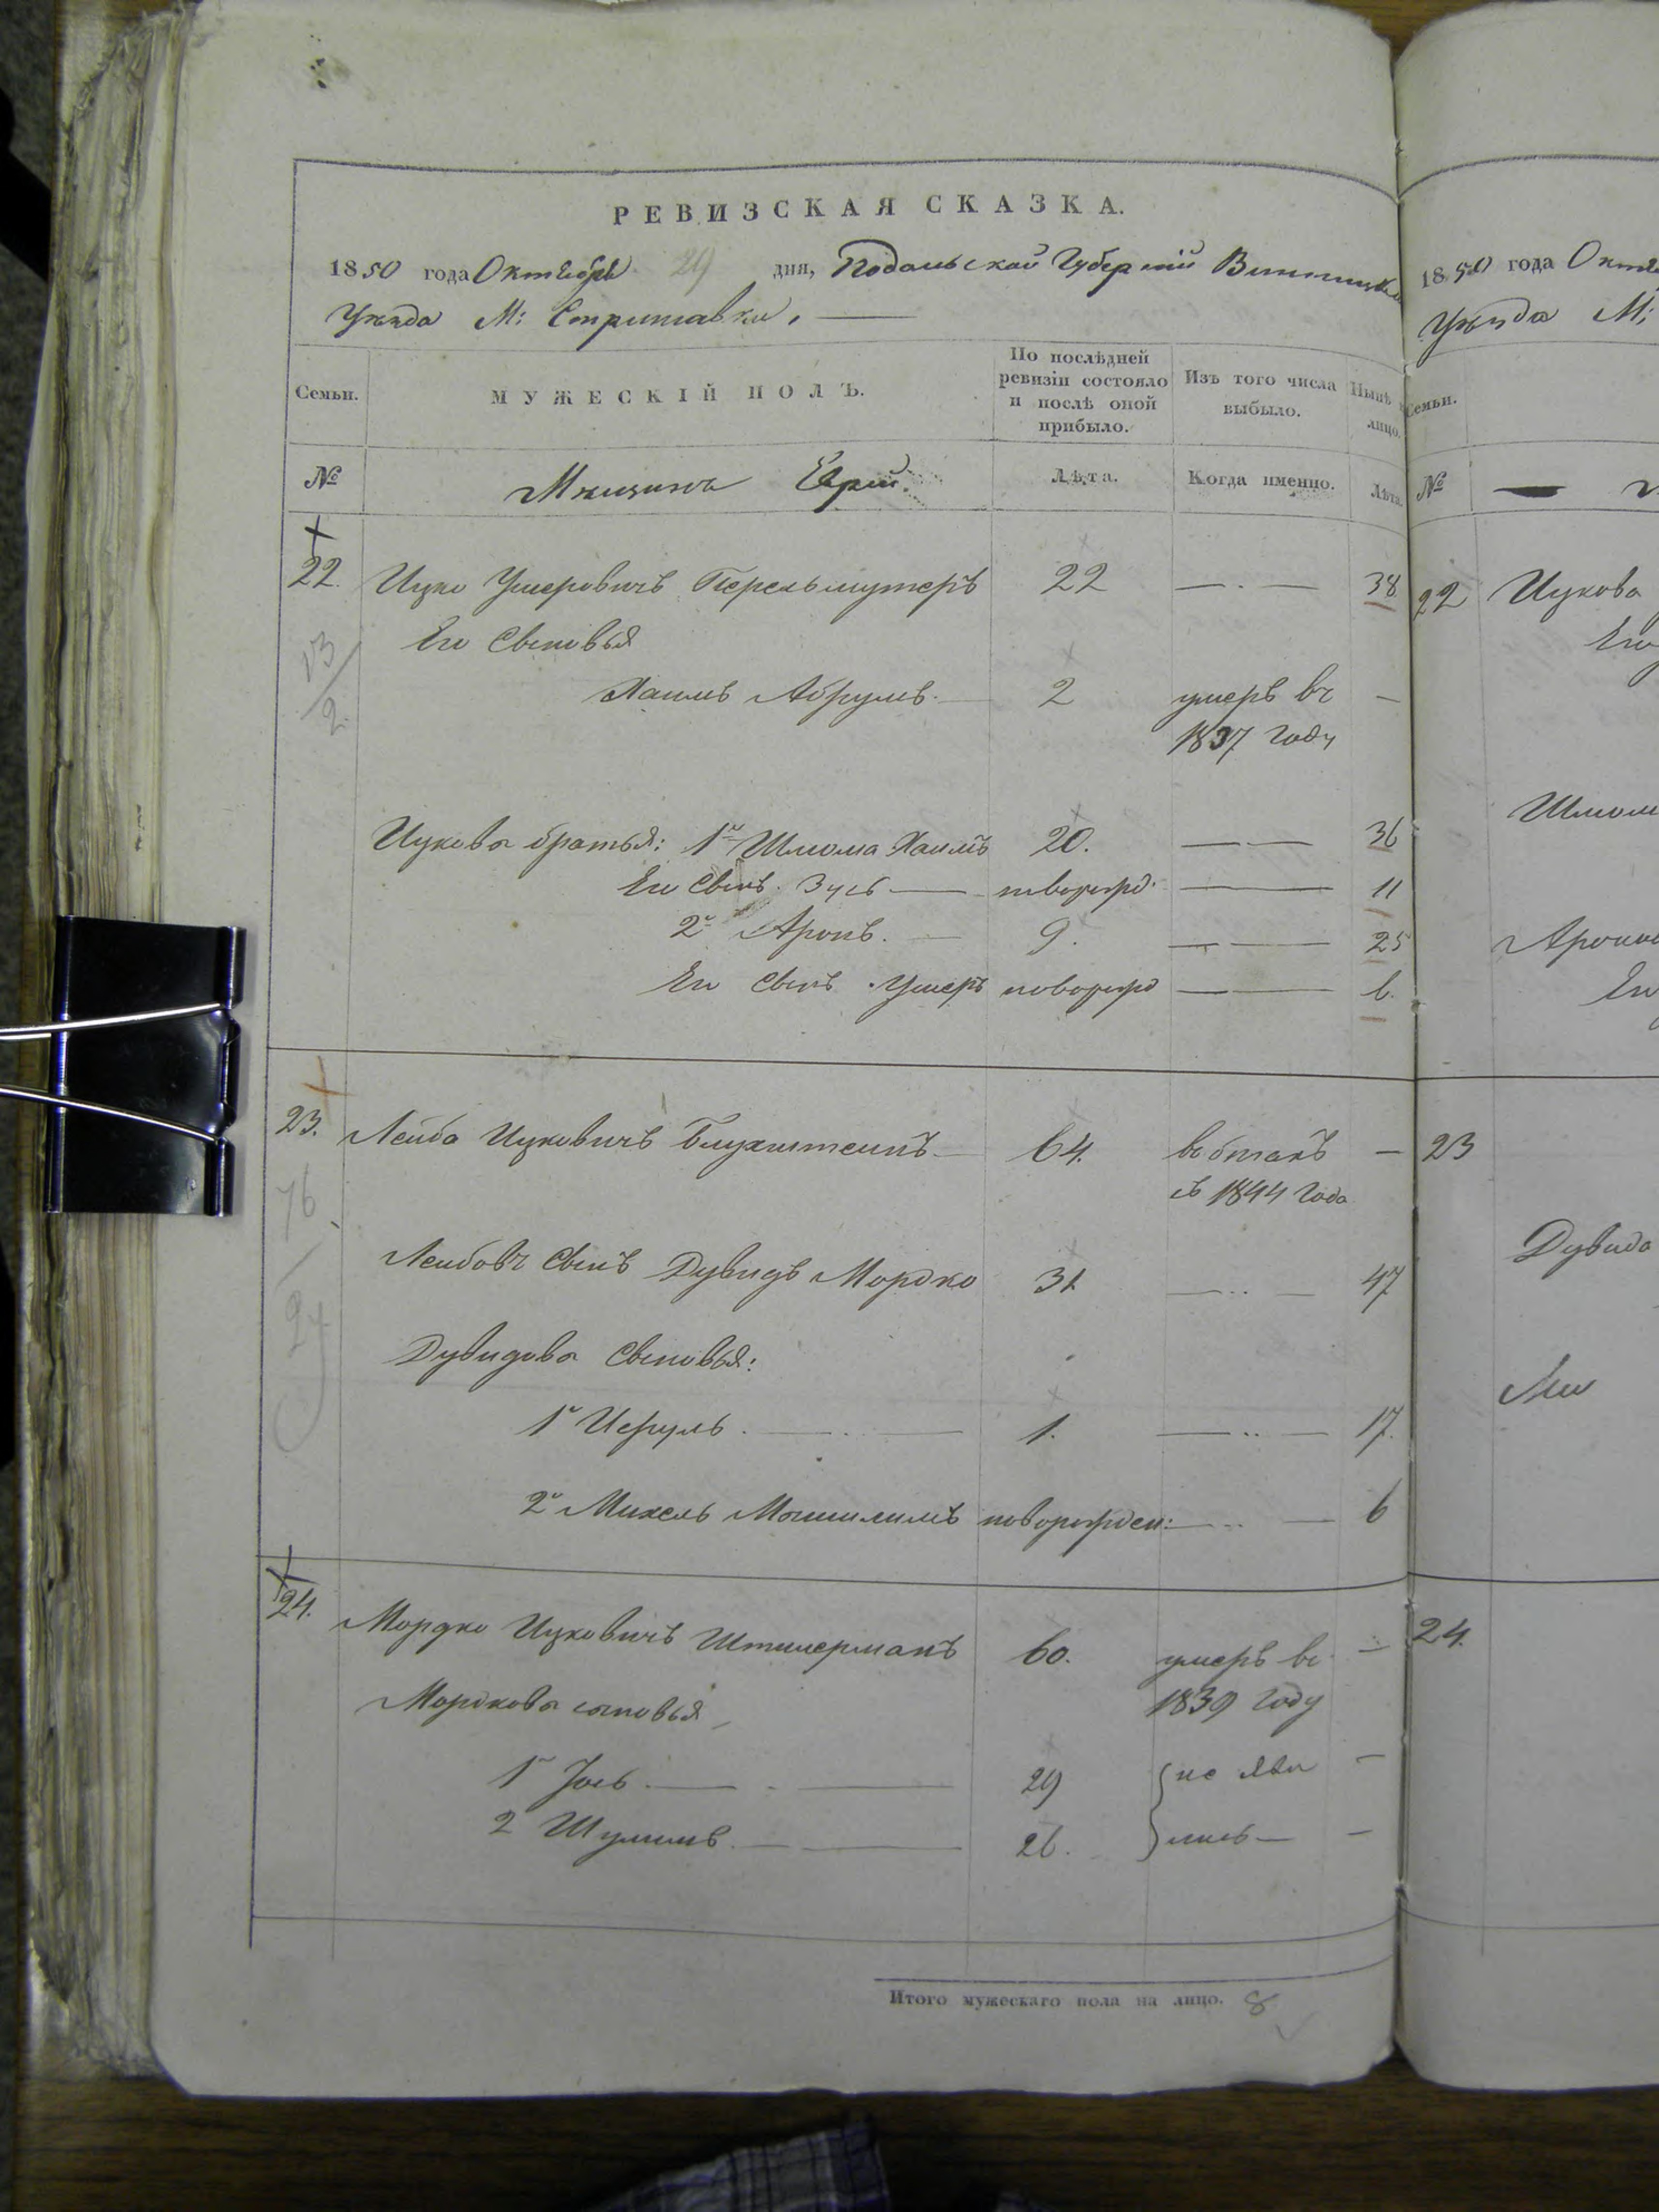 РЕВИЗСКАЯ СКАЗКА.
1850 года Октября 29 дня, Подольской Губерніи Винницкаго
Уѣзда М: Стрижавки,
Семьи. МУЖЕСКІЙ ПОЛЪ. По послѣдней ревизіи состояло и послѣ оной прибыло. Изъ того числа выбыло. Нынѣ лицо.
№ Мѣщанъ Еврей. Лѣта. Когда именно. Лѣта.
22. Ицко Умеровичъ Перельмутеръ 22 — . — 38
Его Сыновья
Хаимъ Абрумъ — 2 умеръ въ —
1837 году
13/2.
Ицкова братья: 1й Шлома Хаимъ 20. — . — 36
Его Сынъ Зусь — новорожд. — 11
2й Аронъ. — 9. — 25
Его Сынъ Умеръ новорожд — 6.
23. Лейба Ицковичъ 64. —
съ 1844 года
76
Лейбовъ Сынъ Дувидъ Мордко 31 — .. — 47
Дувидова Сыновья:
1й Исруль. — .. — 1. — .. — 17.
2й Михель новорожден: — .. — 6
24. Мордко Ицковичъ Штилерманъ 60. умеръ въ —
Мордкова сыновья 1839 году
1й Іось — . — 29 не яви —
2 Шулимъ — 26. лись — —
Итого мужескаго пола на лицо. 8
1850 года
Уѣзда М:
Семьи.
№
22 Ицкова
Его
23
Дувидо
24.